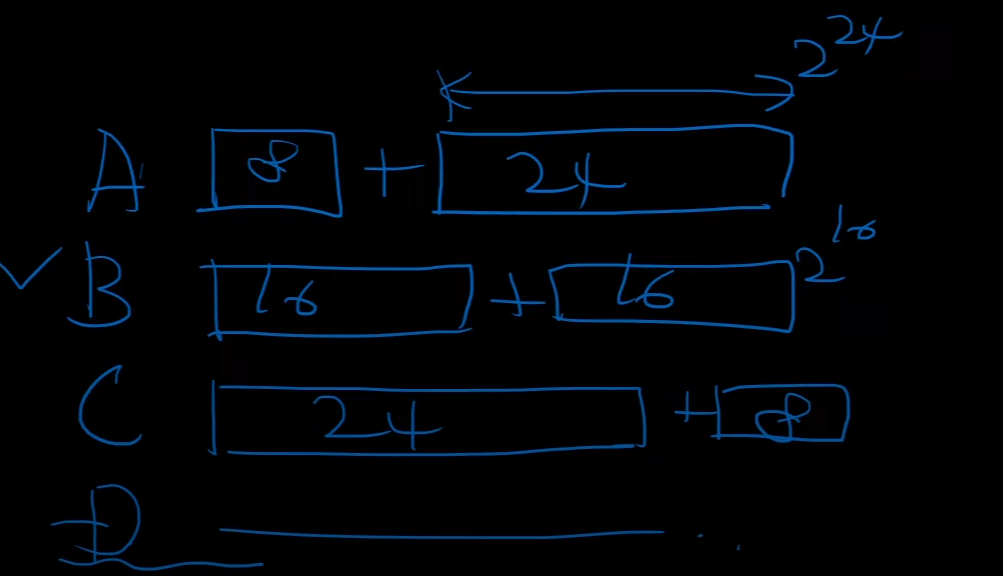 2^24
A 8 + 24
B 16 + 16 2^16
C 24 + 8
D